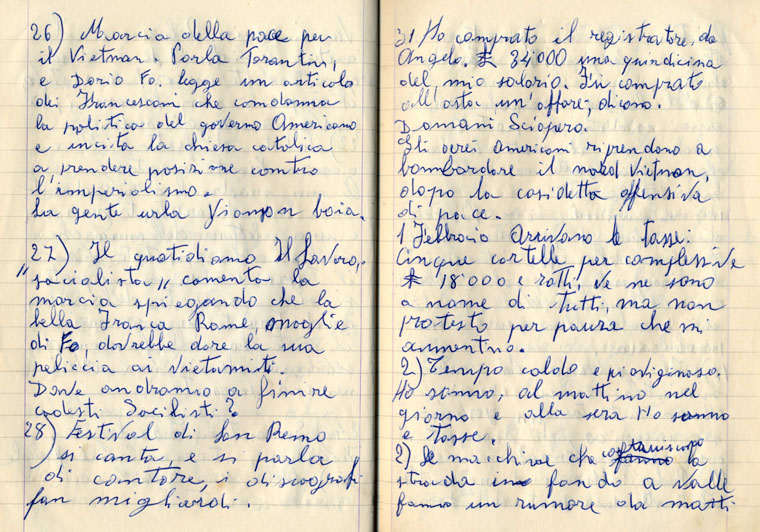 26) Marcia della pace per
il Vietnan. Parla Tarantini,
e Dario Fo. legge un articolo
dei Francescani che condanna
la politica del governo Americano
e incita la chiesa catolica
a prendere posizione contro
l'imperialismo.
La gente urla Vionson boia.
27) Il quotidiano Il Lavoro,
"socialista" comenta la
marcia spiegando che la
bella Franca Rame, moglie
di Fo, dovrebbe dare la sua
peliccia ai vietnamiti.
Dove andramo a finire
codesti Socilisti?
28) Festival di San Remo
si canta, e si parla
di cantore, i discografi
fan migliardi.
31 Ho comprato il registratore, da
Angelo. £ 34'000 una quindicina
del mio salario. Fu comprato
all'asta un'affare, dicono.
Domani Sciopero.
Gli aerei americani riprendono a
bombardare il nord Vietnan,
dopo la cosidetta offensiva
di pace.
1 Febbraio Arrivano le tasse:
Cinque cartelle per complessive
£ 18'000 e rotti, ve ne sono
a nome di tutti, ma non
protesto per paura che mi
aumentino.
2) Tempo caldo e piovigginoso.
Ho sonno, al mattino nel
giorno e alla sera Ho sonno
e tosse.
2) Le macchine che costruiscopo la
strada in fondo a valle
fanno un rumore da matti